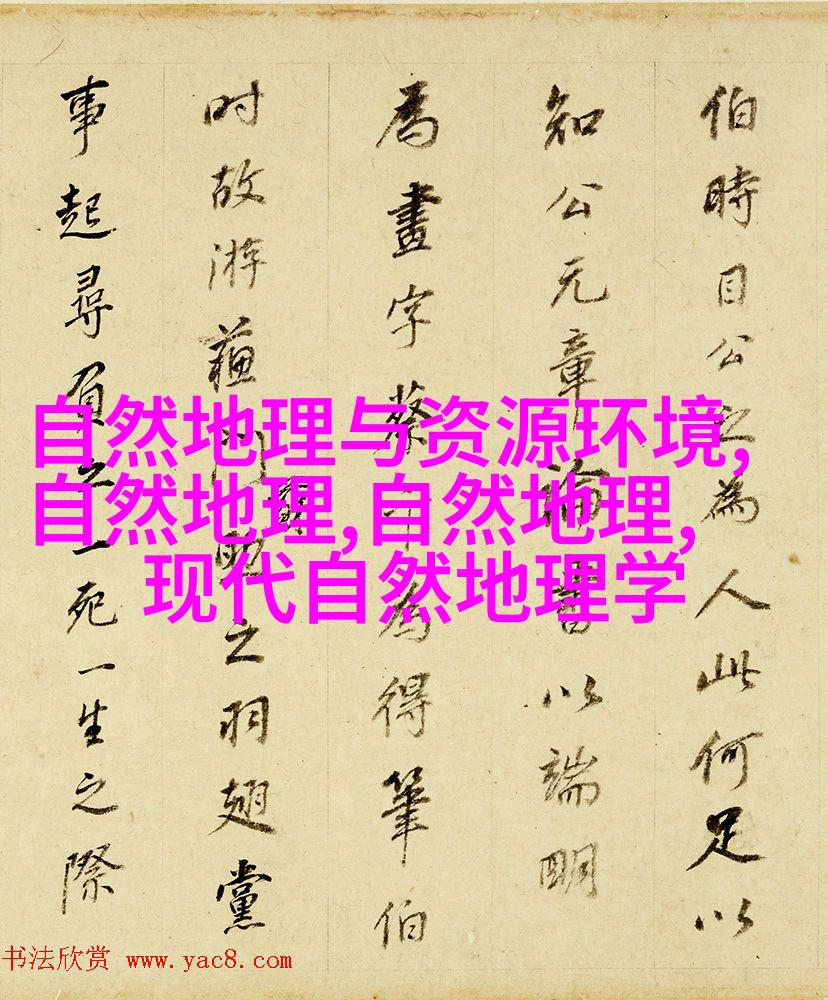 伯時目公之為人此何足以
知公元章論書以端明
為畫字蔡卞為得筆伯
时故游蘓門助之羽翅黨
事起尋負之一死一生之際
自然地理与资源环境,
自然地理,自然地理,
现代自然地理学
书法欣赏 www.yac8.com